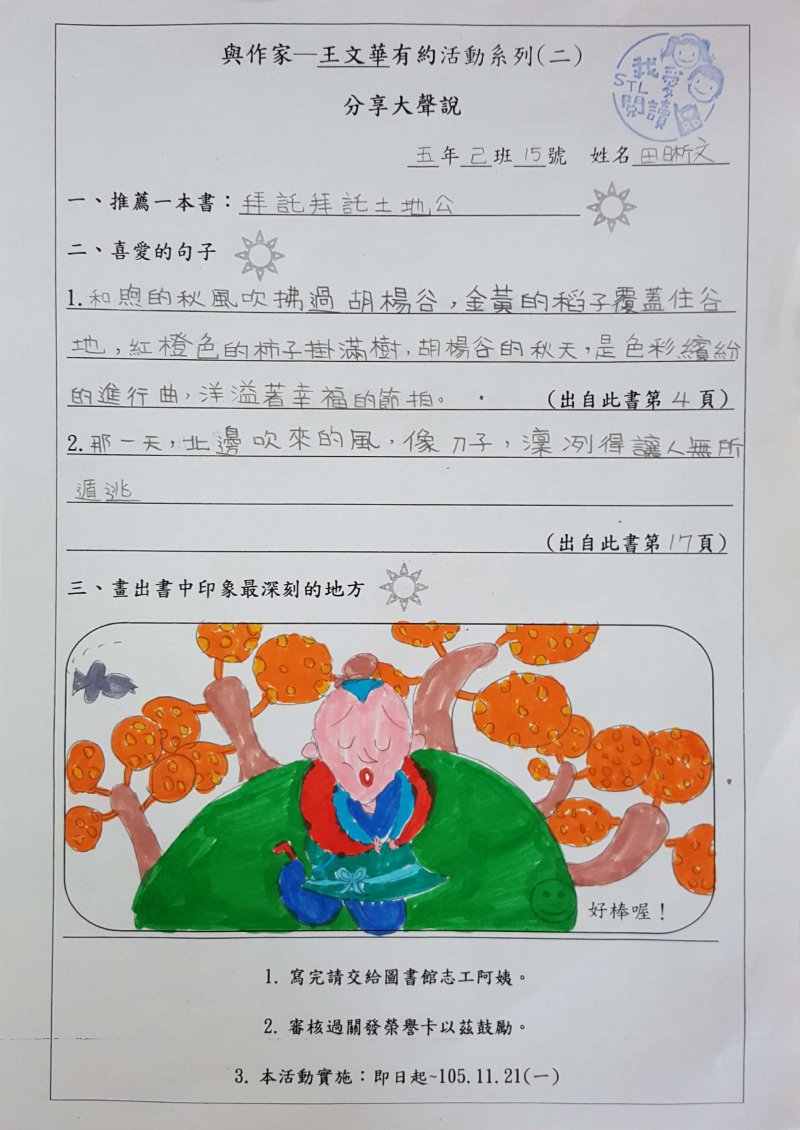 與作家—王文華有約活動系列(二)
我愛
STL
閱讀
分享大聲說
五年己班15號 姓名田晰文
一、推薦一本書：拜託拜託土地公
二、喜愛的句子
1.和煦的秋風吹拂過胡楊谷，金黃的稻子覆蓋住谷
地，紅橙色的柿子掛滿樹，胡楊谷的秋天，是色彩繽紛
的進行曲，洋溢著幸福的節拍。 (出自此書第4頁)
2.那一天，北邊吹來的風，像刀子，凜冽得讓人無所
遁逃
(出自此書第17頁)
三、畫出書中印象最深刻的地方
好棒喔！
1. 寫完請交給圖書館志工阿姨。
2. 審核過關發榮譽卡以茲鼓勵。
3. 本活動實施：即日起~105.11.21(一)